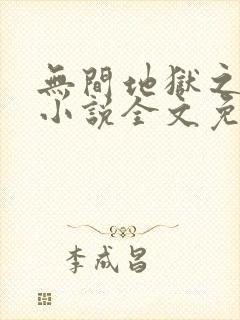 無間地獄之
小說全文免
李成昌